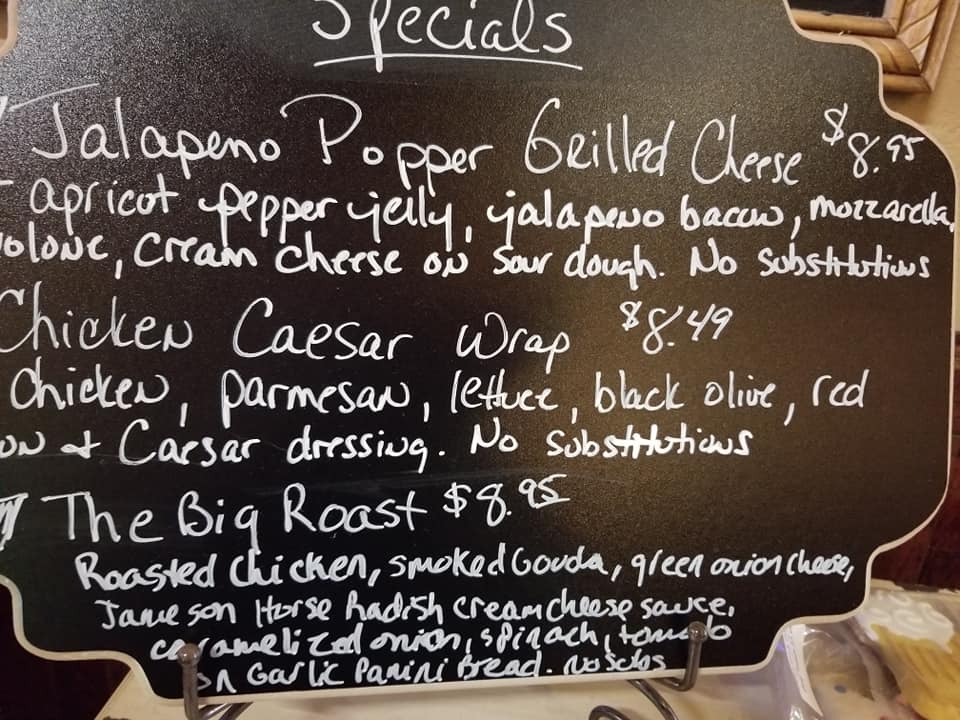 Specials
Jalapeno Popper Grilled Cheese $8.95
apricot pepper jelly, jalapeno bacon, mozzarella,
olone, cream cheese on sour dough. No substitutions
Chicken Caesar Wrap $8.49
Chicken, parmesan, lettuce, black olive, red
on + Caesar dressing. No substitutions
The Big Roast $8.95
Roasted chicken, smoked Gouda, green onion cheese,
Jameson Horse Radish cream cheese sauce,
caramelized onion, spinach, tomato
on Garlic Panini Bread. No Subs